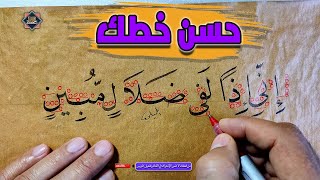 حسن خطك
إِنِّي إِذًا لَفِي ضَلَالٍ مُّبِينٍ